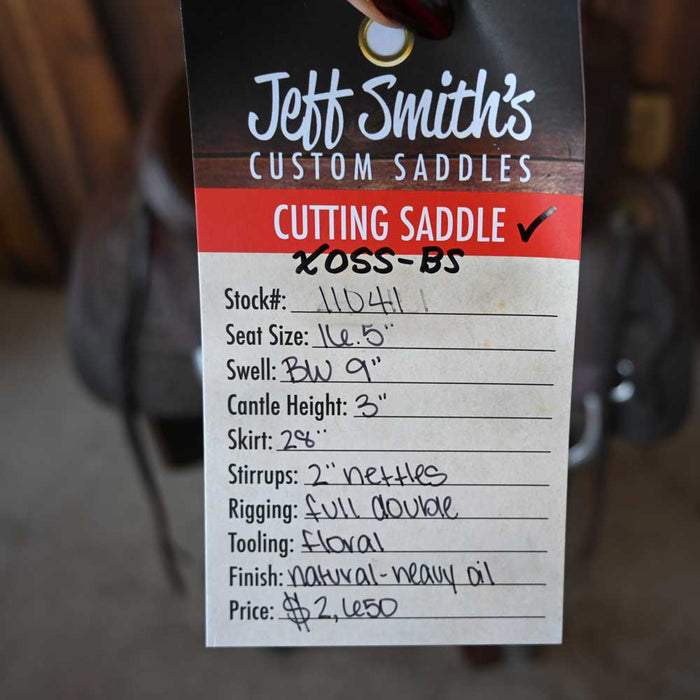 Jeff Smith's
CUSTOM SADDLES
CUTTING SADDLE ✓
XOSS-BS
Stock#: 110411
Seat Size: 16.5"
Swell: BW 9"
Cantle Height: 3"
Skirt: 28"
Stirrups: 2" nettles
Rigging: full double
Tooling: floral
Finish: natural-heavy oil
Price: $2,650